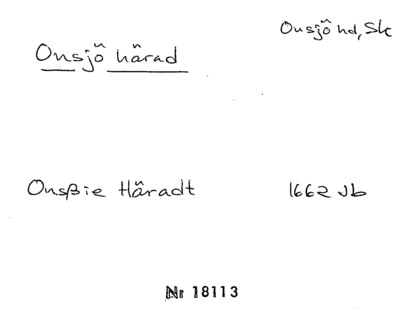 Onsjö hd, Sk
Onsjö härad
Onsßie Häradt 1662 Jb
Nr 18113